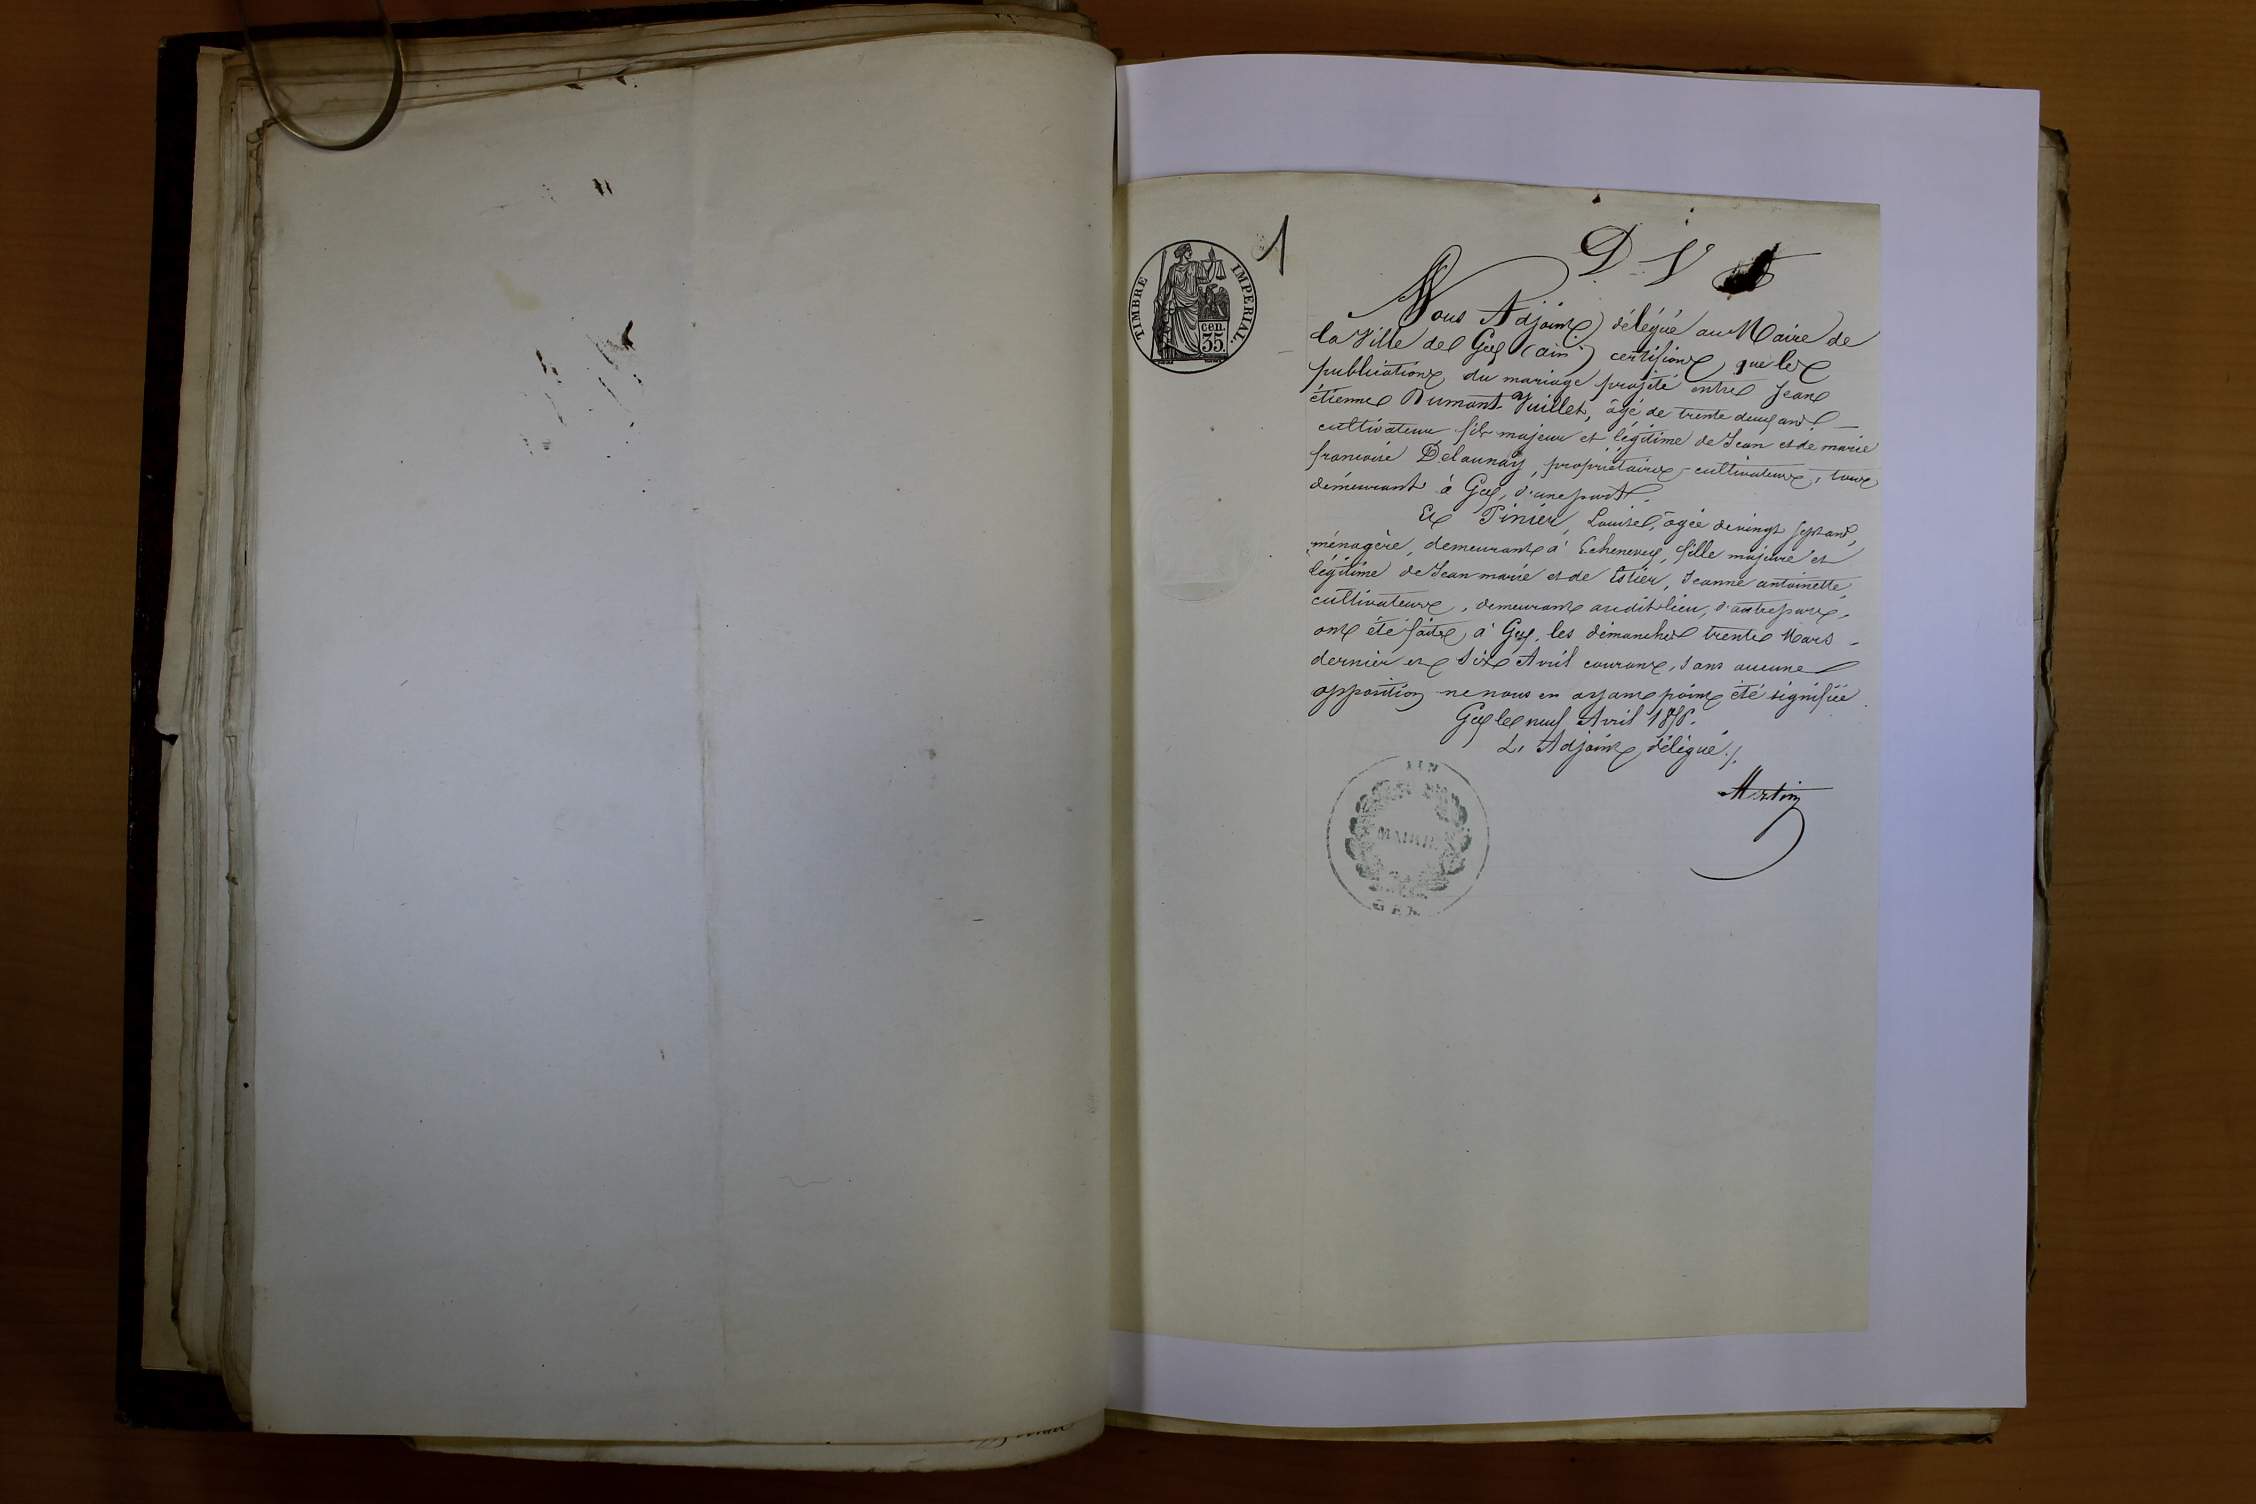 1
D. V.
TIMBRE IMPERIAL.
cen.
35
Nous Adjoint délégué au Maire de
la Ville de Gex (ain) certifions que les
publications du mariage projeté entre Jean
étienne Dumont Vuillet, âgé de trente deux ans
cultivateur fils majeur et légitime de Jean et de marie
francoise Delaunay, propriétaires-cultivateurs, tous
demeurant à Gex, d'une part.
Et Pinier, Louise, âgée de vingt sept ans,
ménagère, demeurant à Echenevex, fille majeure et
légitime de Jean marie et de Estier, Jeanne antoinette
cultivateurs, demeurant audit lieu, d'autre part,
ont été faites à Gex, les dimanches trente Mars
dernier et Six Avril courant, sans aucune
opposition ne nous en ayant point été signifiée.
Gex le neuf Avril
L. Adjoint délégué./.
AIN
MAIRIE
GEX